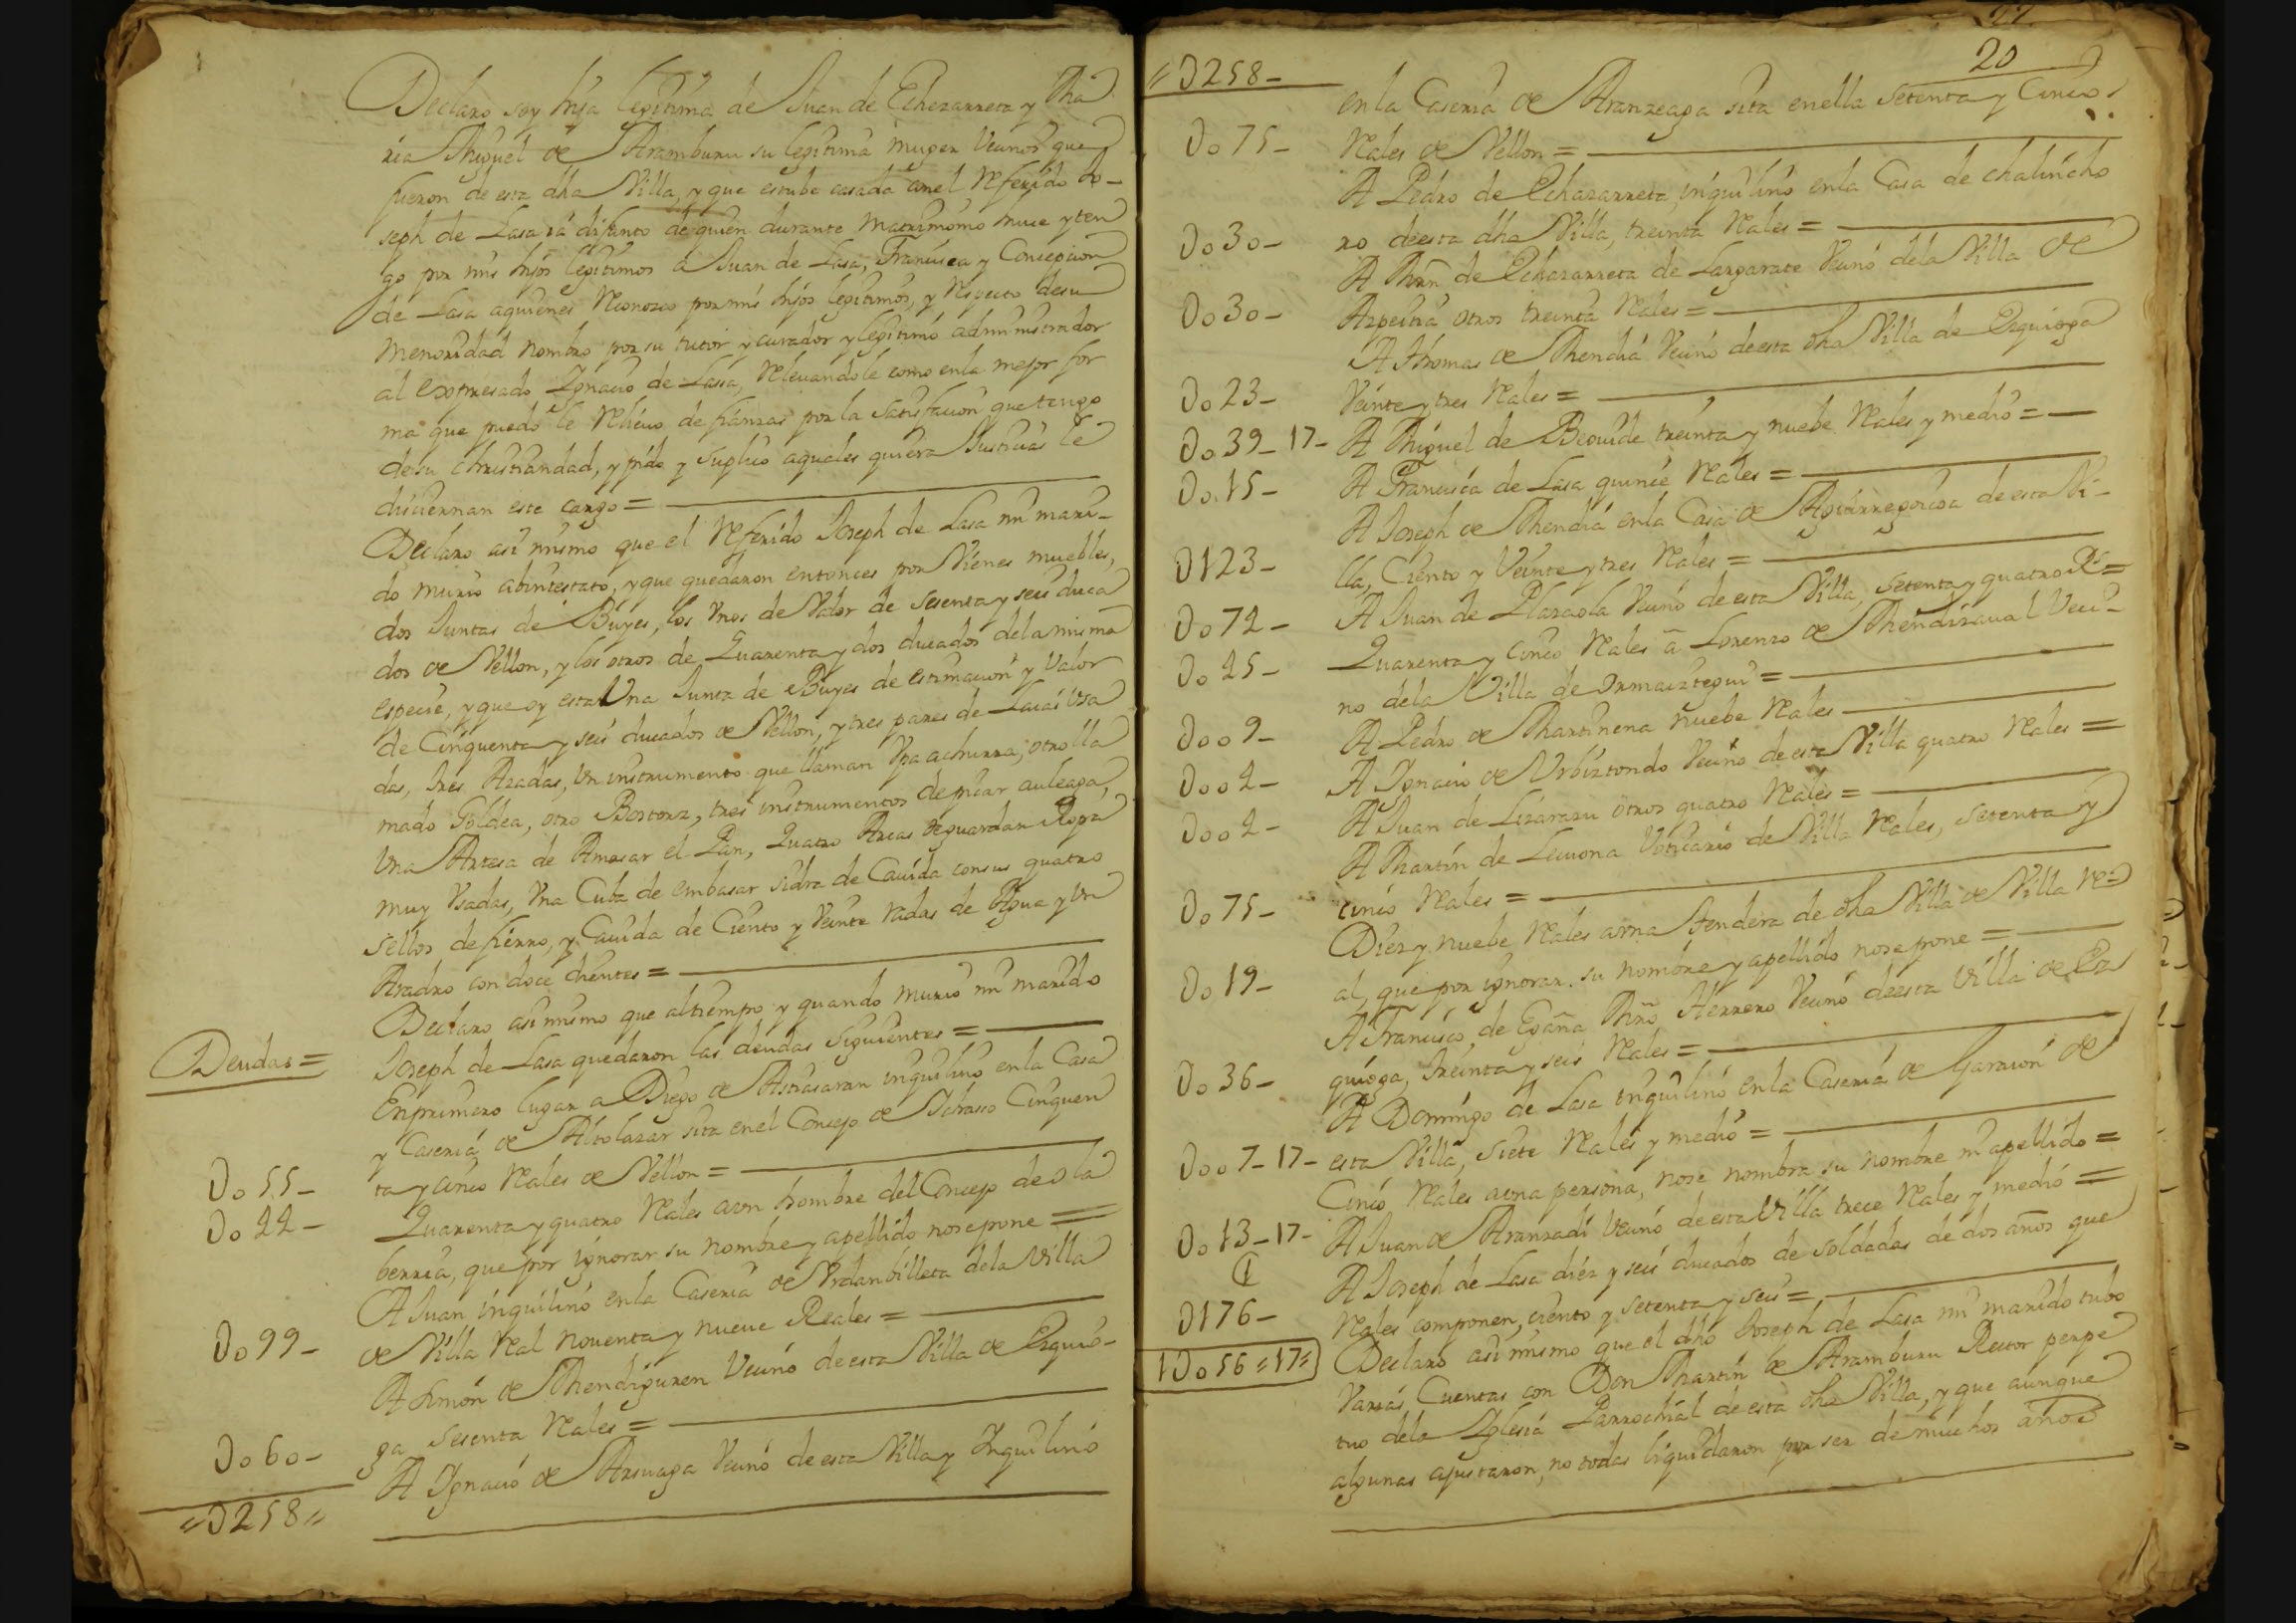 Declaro soy hija legitima de Juan de Echezarreta y Ma
ria Miguel de Aramburu su legitima muger Vecinos que
fueron de esta dha Villa, y que estube casada con el Referido Jo-
seph de Lasa ia difunto de quien durante matrimonio huue y ten
go por mis hijos legitimos a Juan de Lasa, Francisca y Concepcion
de Lasa aquienes Reconozco por mis hijos legitimos, y Respecto de su
menoridad nombro por su tutor y curador y legitimo administrador
al expresado Ignacio de Lassa, Releuandole como enla mejor for
ma que puedo le Relieuo de fianzas por la satisfacion que tengo
de su christiandad, y pido y suplico aquales quiera Justicias le
disciernan este cargo =
Declaro asi mismo que el Referido Joseph de Lasa mi mari-
do murio abintestato, y que quedaron entonces por Vienes muebles,
dos Juntas de Buyes, los vnos de Valor de sesenta y seis duca
dos de Vellon, y los otros de Quarenta y dos ducados dela misma
especie, y que oy esta Vna Junta de Buyes de estimacion y Valor
de Cinquenta y seis ducados de Vellon, y tres pares de Laias Vsa
das, tres Azadas, Vn instrumento que llaman Vpaachurra, otro lla
mado Goldea, otro Bostorz, tres instrumentos de picar auleaga,
Vna Artesa de Amasar el Pan, Quatro Arcas de guardar Ropa
muy Vsadas, Vna Cuba de embasar sidra de Cauida con sus quatro
sellos de fierro, y Cauida de Ciento y Veinte Radas de Agua y Vn
Aradro con doce dientes =
Declaro asi mismo que al tiempo y quando murio mi marido
Deudas =
Joseph de Lasa quedaron las deudas siguientes =
En primero lugar a Diego de Astiasaran inquilino enla Casa
y Caseria de Altolazar sita en el Concejo de Ichasso Cinquen
Do 55- ta y cinco Reales de Vellon =
Do 44- Quarenta y quatro Reales a vn hombre del Concejo de ola
berria, que por ignorar su nombre y apellido no se pone =
A Juan inquilino enla Caseria de Vrdanbilleta dela Villa
Do 99- de Villa Real nouenta y nueue Reales =
A Simon de Mendiguren Vecino de esta Villa de Ezquio-
Do 60- ga sesenta Reales =
A Ignacio de Arsuaga Vecino de esta Villa y Inquilino
"D258"
20
"D258-
en la Caseria de Aranzeaga sita en ella setenta y Cinco
Do 75- Reales de Vellon =
A Pedro de Echazarreta, inquilino enla Casa de chalincho
Do 30- ro de esta dha Villa, treinta Reales =
A Mrn de Echazarreta de Lazgarate Vecino dela Villa de
Do 30- Azpeitia otros treinta Reales =
A Thomas de Mendia Vecino de esta dha Villa de Ezquioga
Do 23- Veinte y tres Reales =
Do 39-17- A Miguel de Beouide treinta y nuebe Reales y medio =
Do 15- A Francisca de Lasa quince Reales =
A Joseph de Mendia enla Casa de Aguirregoicoa de esta Vi-
D123- lla, Ciento y Veinte y tres Reales =
Do 74- A Juan de Plazaola Vecino de esta Villa, setenta y quatro Rs =
Do 45- Quarenta y cinco Reales a Lorenzo de Mendizaual Veci-
no dela Villa de Ormaiztegui =
Doo 9- A Pedro de Martinena nuebe Reales
Doo 4- A Ignacio de Vrbiztondo Vecino de esta Villa quatro Reales =
Doo 4- A Juan de Lizarazu otros quatro Reales =
A Martin de Lecuona Boticario de Villa Reales, setenta y
Do 75- cinco Reales =
Diez y nuebe Reales a vna tendera de dha Villa de Villa Re
Do 19- al, que por ignorar su nombre y apellido no se pone =
A Francisco de Egaña Mro Herrero Vecino de esta Villa de Ez
Do 36- quioga, treinta y seis Reales =
A Domingo de Lasa inquilino enla Caseria de Garacion de
Doo 7-17- esta Villa, siete Reales y medio =
Cinco Reales a vna persona, no se nombra su nombre ni apellido =
Do 13-17- A Juan de Aranzadi Vecino de esta Villa trece Reales y medio =
A Joseph de Lasa diez y seis ducados de soldadas de dos años que
D176- Reales componen, ciento y setenta y seis =
1Do56"17" Declaro asi mismo que el dho Joseph de Lasa mi marido tubo
Varias Cuentas con Don Martin de Aramburu Rector perpe
tuo dela Iglesia Parrochial de esta dha Villa, y que aunque
algunas ajustaron, no todas liquidaron por ser de muchos años